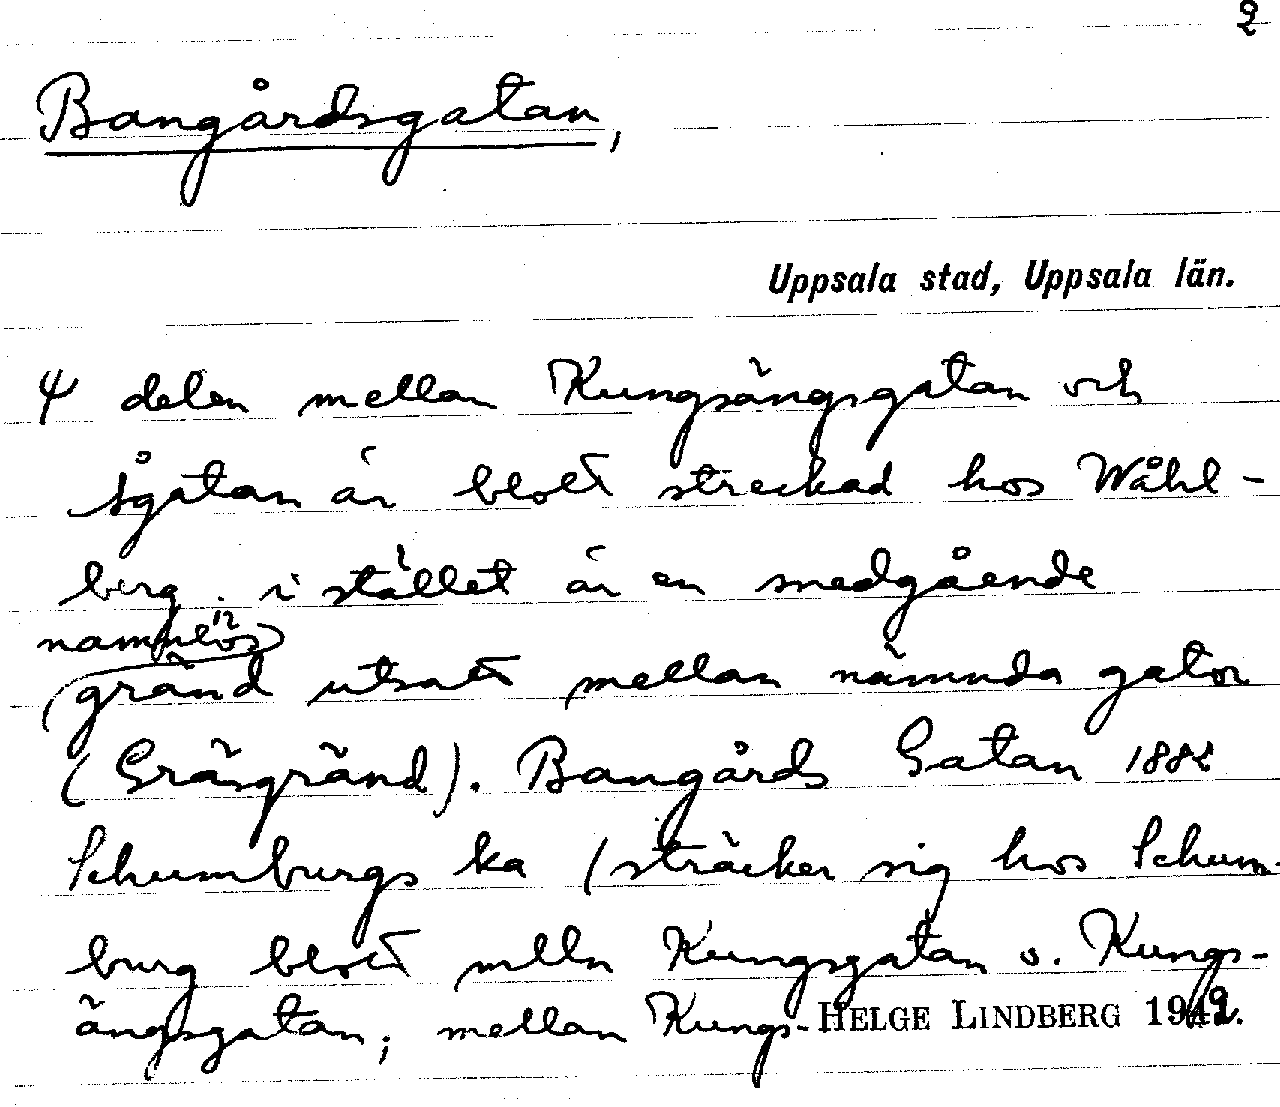 2
Bangårdsgatan,
Uppsala stad, Uppsala län.
4 delen mellan Kungsängsgatan och
Ågatan är blott streckad hos Wåhl-
berg. i stället är en snedgående
namnlös
gränd utsatt mellan nämnda gator
(Gräsgränd). Bangårds Gatan 1882
Schumburgs ka (sträcker sig hos Schum-
burg blott mlln Kungsgatan o. Kungs-
ängsgatan; mellan Kungs-
HELGE LINDBERG 1949.